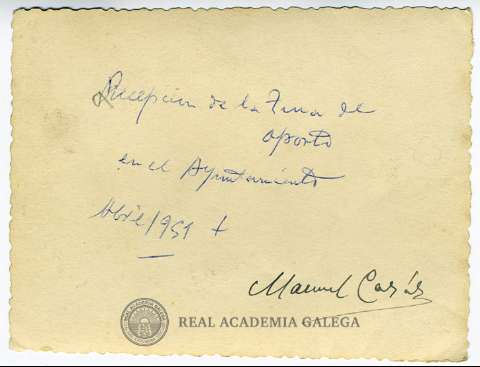 Recepcion de la Tuna de
Oporto
en el Ayuntamiento
Abril/951 +
Manuel Casás
REAL ACADEMIA GALEGA